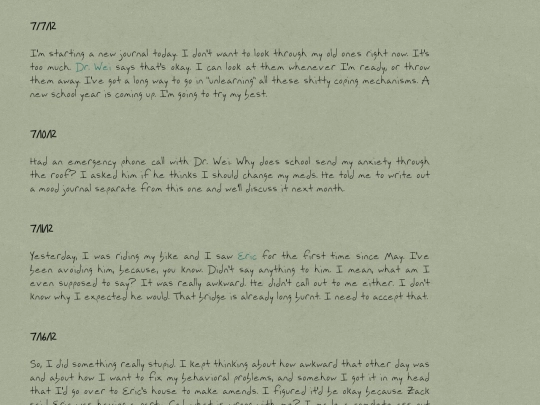 7/7/12
I'm starting a new journal today. I don't want to look through my old ones right now. It's
too much. Dr. Wei says that's okay. I can look at them whenever I'm ready, or throw
them away. I've got a long way to go in "unlearning" all these shitty coping mechanisms. A
new school year is coming up. I'm going to try my best.
7/10/12
Had an emergency phone call with Dr. Wei. Why does school send my anxiety through
the roof? I asked him if he thinks I should change my meds. He told me to write out
a mood journal separate from this one and we'll discuss it next month.
7/11/12
Yesterday, I was riding my bike and I saw Eric for the first time since May. I've
been avoiding him, because, you know. Didn't say anything to him. I mean, what am I
even supposed to say? It was really awkward. He didn't call out to me either. I don't
know why I expected he would. That bridge is already long burnt. I need to accept that.
7/16/12
So, I did something really stupid. I kept thinking about how awkward that other day was
and about how I want to fix my behavioral problems, and somehow I got it in my head
that I'd go over to Eric's house to make amends. I figured it'd be okay because Zack